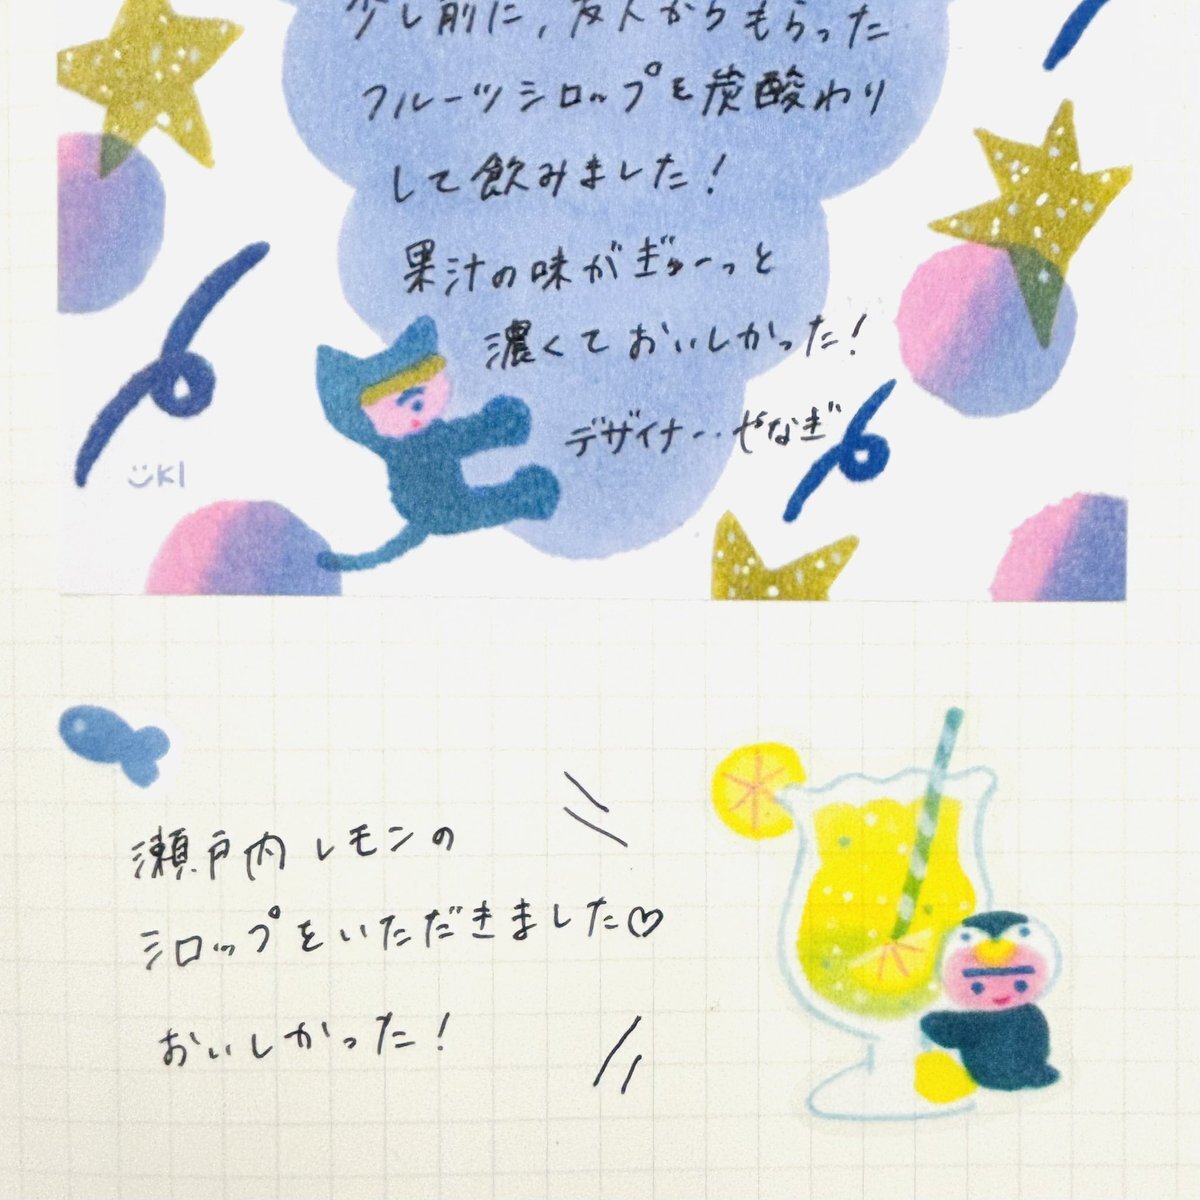 少し前に、友人からもらった
フルーツシロップを炭酸わり
して飲みました!
果汁の味がぎゅーっと
濃くておいしかった!
デザイナー・やなぎ
üki
瀬戸内レモンの
シロップをいただきました♡
おいしかった!